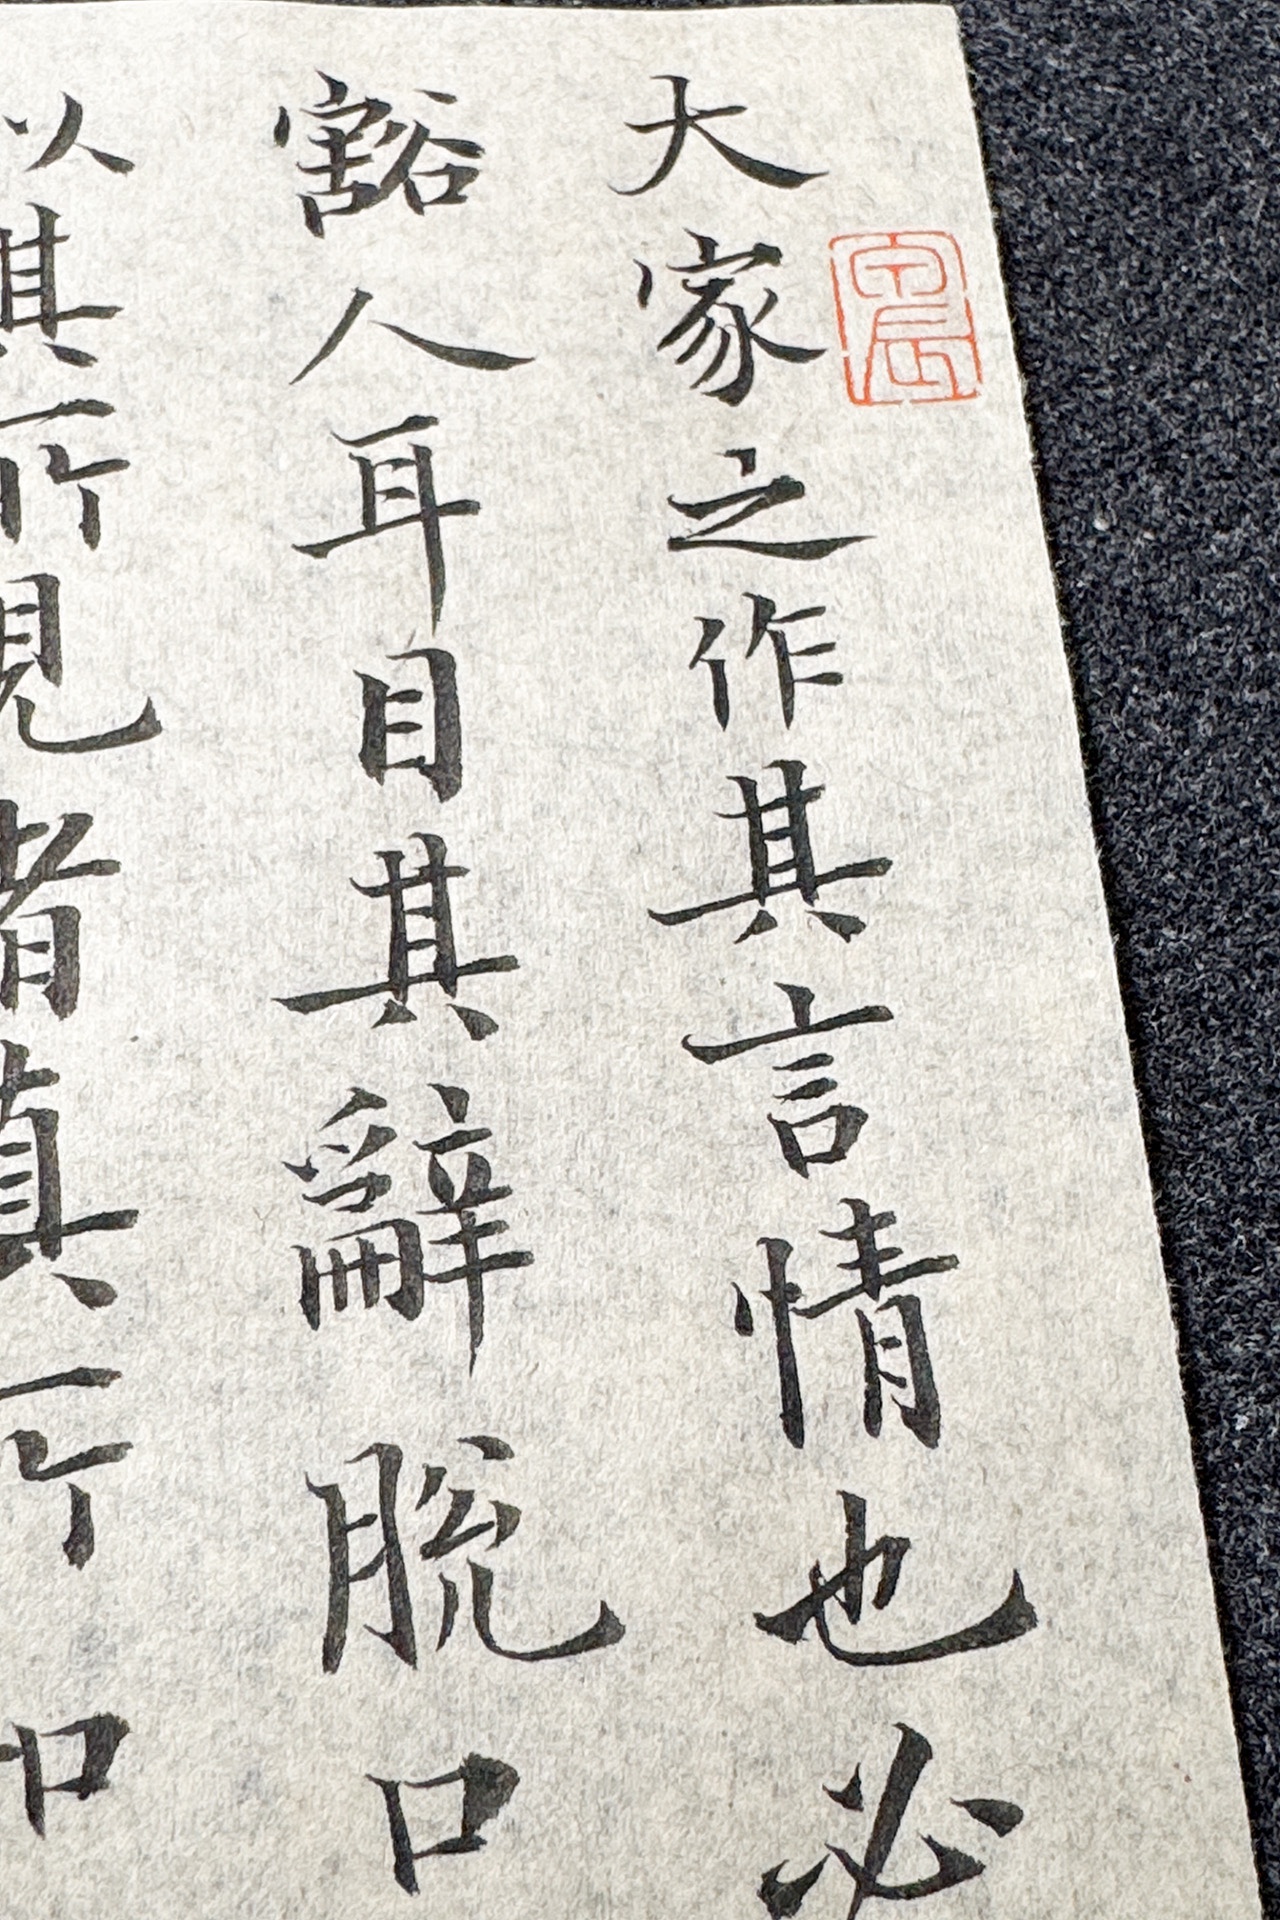 大家之作其言情也必
豁人耳目其辭脫口
以其所見者真所知